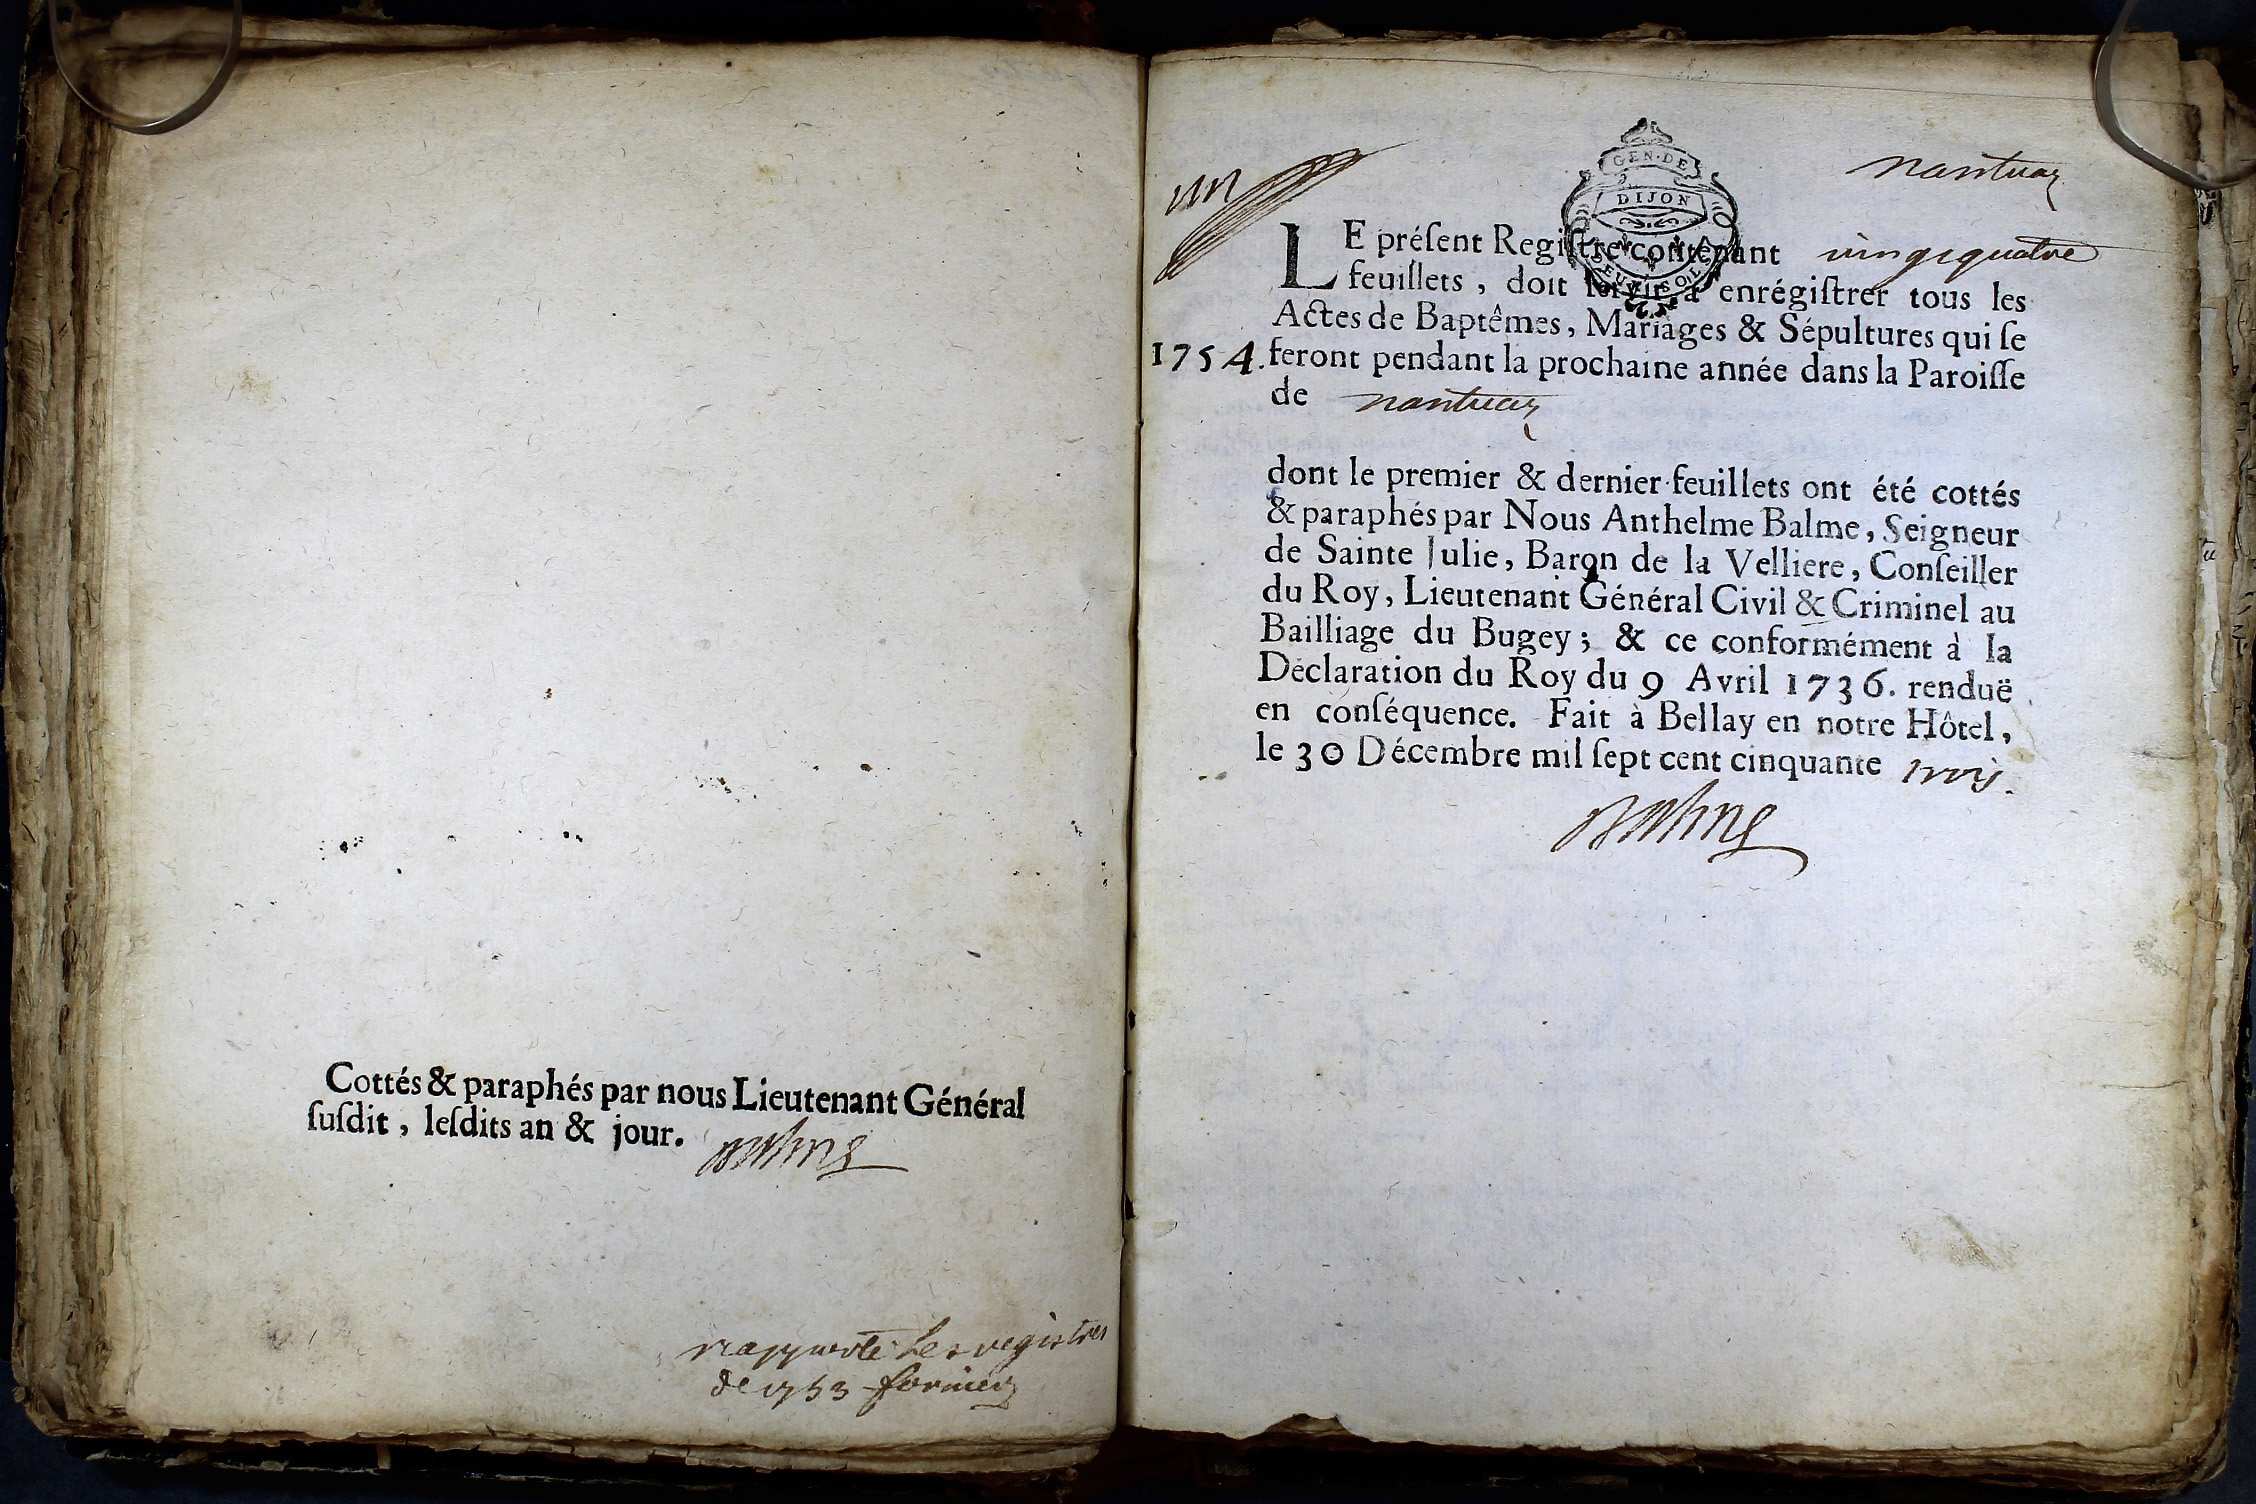 Cottés & paraphés par nous Lieutenant Général
suſdit, leſdits an & jour. Balme
rapporté les registres
de 1753
un
GEN·DE
DIJON
DEUX SOLS
nantuaz
LE préſent Regiſtre contenant vingtquatre
feuillets, doit ſervir à enrégiſtrer tous les
Actes de Baptêmes, Mariages & Sépultures qui ſe
1754. feront pendant la prochaine année dans la Paroiſſe
de nantuaz
dont le premier & dernier feuillets ont été cottés
& paraphés par Nous Anthelme Balme, Seigneur
de Sainte Julie, Baron de la Velliere, Conſeiller
du Roy, Lieutenant Général Civil & Criminel au
Bailliage du Bugey; & ce conformément à la
Déclaration du Roy du 9 Avril 1736. renduë
en conſéquence. Fait à Bellay en notre Hôtel,
le 30 Décembre mil ſept cent cinquante trois.
Balme